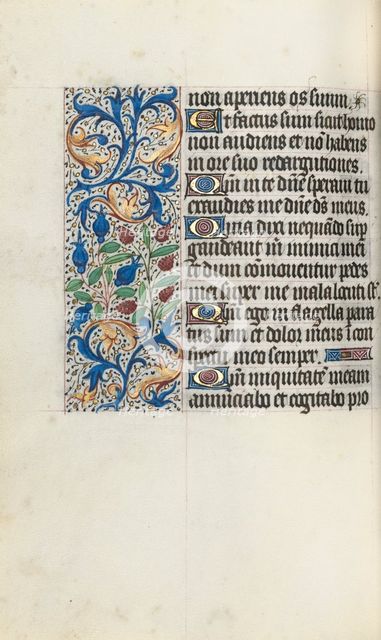 non aperiens os suum.
Et factus sum sicut homo
non audiens et nō habens
in ore suo redargutiones.
Qm̄ in te dn̄e speraui tu
exaudies me dn̄e ds̄ meus.
Quia dixi nequādo sup
gaudeant m inimici mei
et dum cōmouentur pedes
mei super me magna locuti st̄.
Qm̄ ego in flagella para
tus sum et dolor meus ī con
spectu meo semper.
Qm̄ iniquitatē meam
annunciabo et cogitabo pro